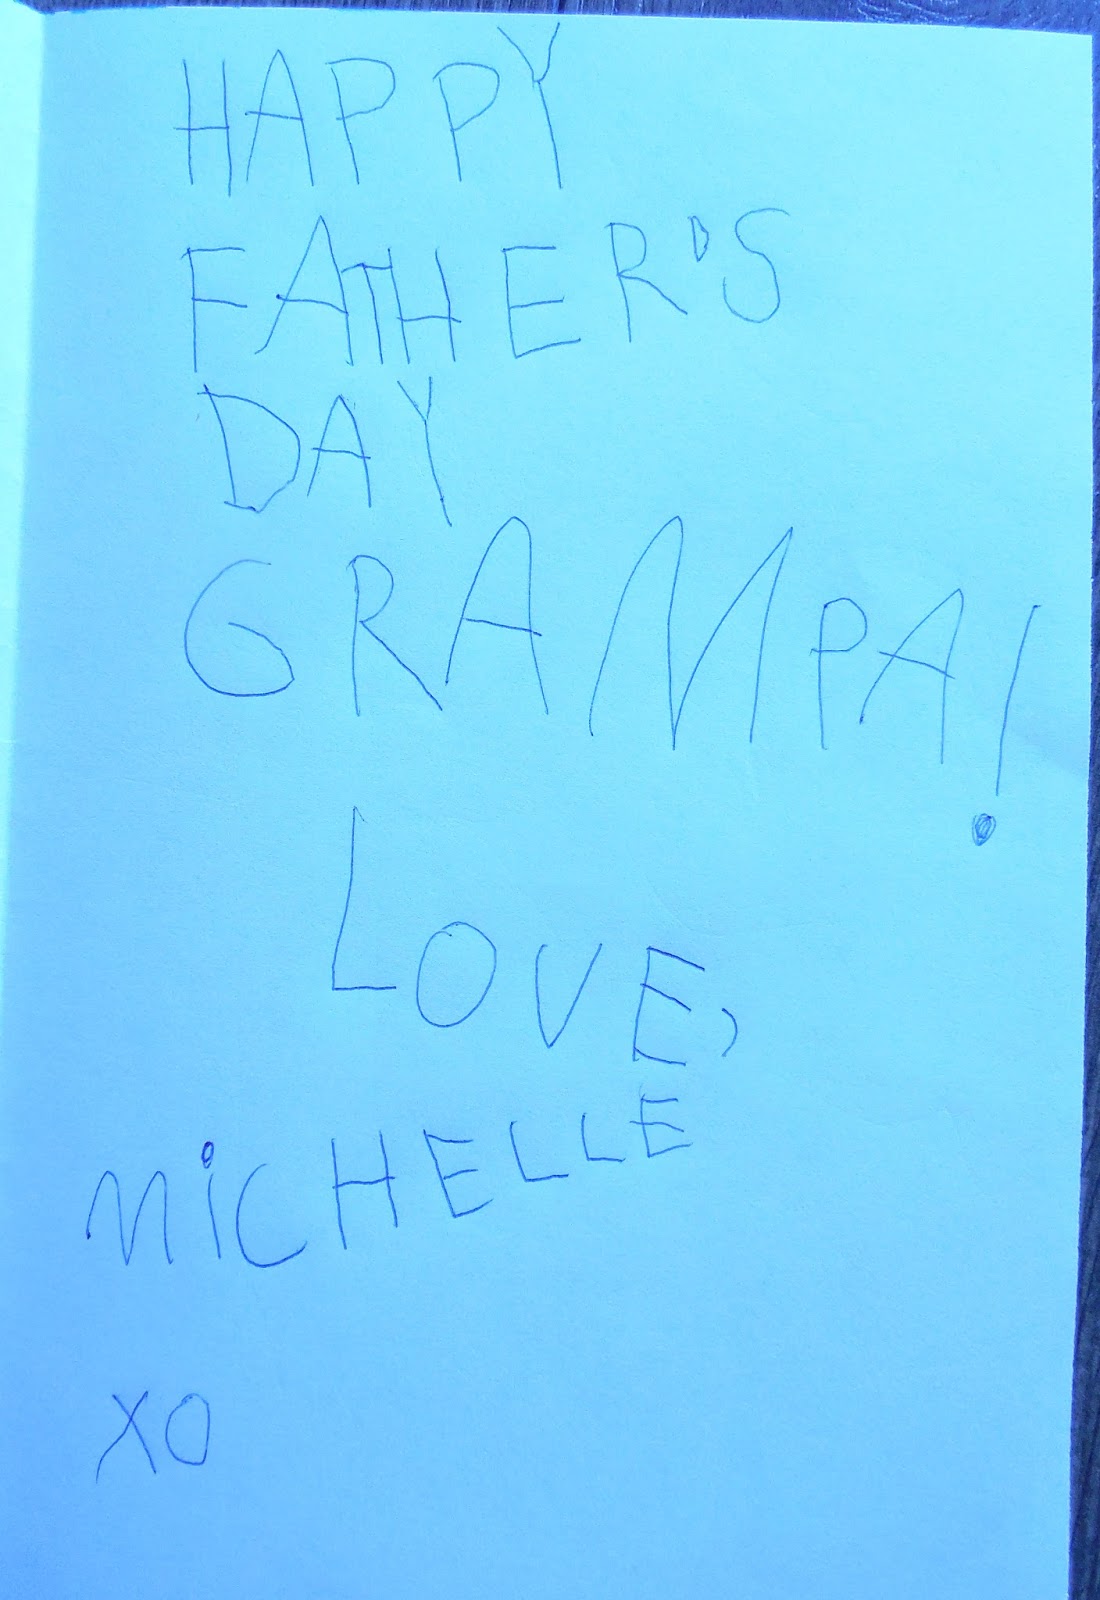 HAPPY
FATHER'S
DAY
GRAMPA!
LOVE,
MiCHELLE
XO